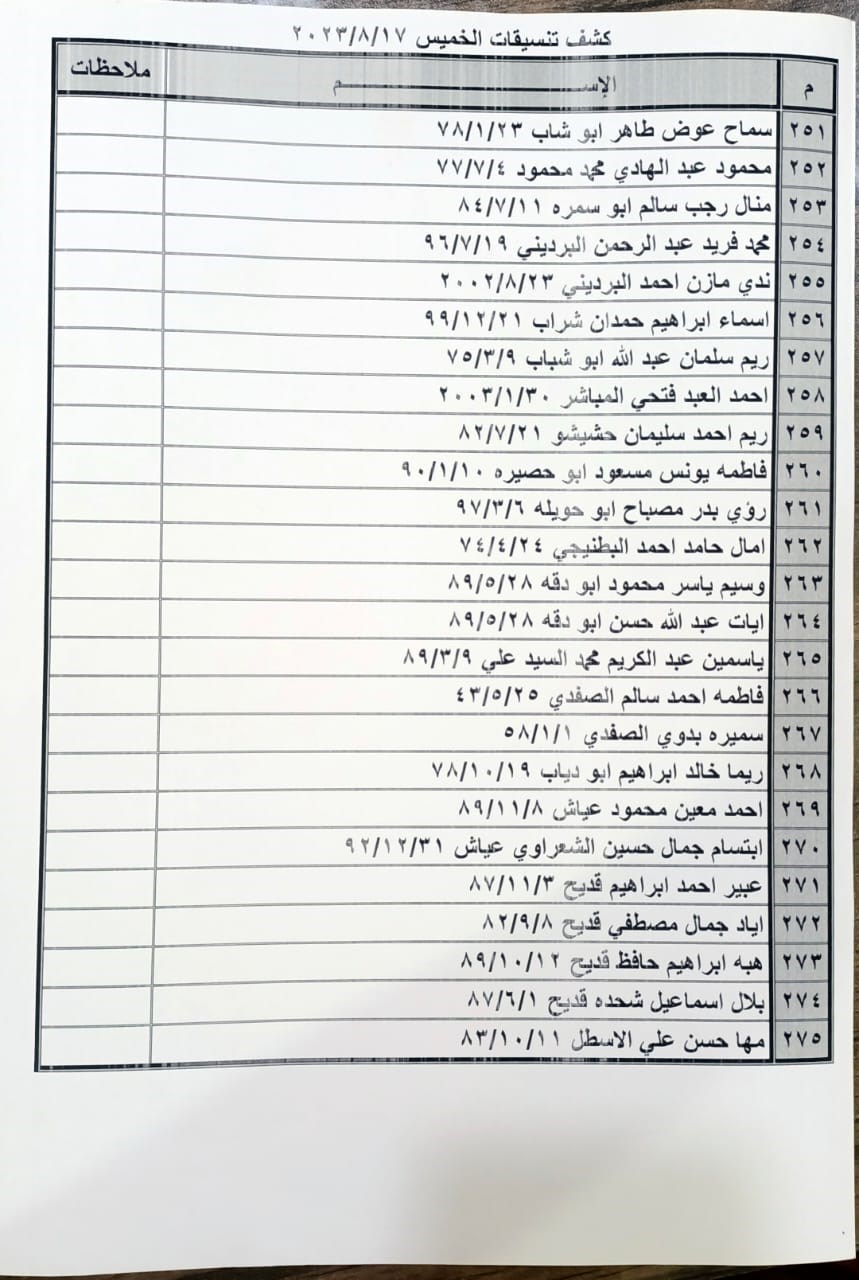 كشف تنسيقات الخميس ٢٠٢٣/٨/١٧
م الإســـــم ملاحظات
٢٥١ سماح عوض طاهر ابو شاب ٧٨/١/٢٣
٢٥٢ محمود عبد الهادي محمد محمود ٧٧/٧/٤
٢٥٣ منال رجب سالم ابو سمره ٨٤/٧/١١
٢٥٤ محمد فريد عبد الرحمن البرديني ٩٦/٧/١٩
٢٥٥ ندي مازن احمد البرديني ٢٠٠٢/٨/٢٣
٢٥٦ اسماء ابراهيم حمدان شراب ٩٩/١٢/٢١
٢٥٧ ريم سلمان عبد الله ابو شباب ٧٥/٣/٩
٢٥٨ احمد العبد فتحي المباشر ٢٠٠٣/١/٣٠
٢٥٩ ريم احمد سليمان حشيشو ٨٢/٧/٢١
٢٦٠ فاطمه يونس مسعود ابو حصيره ٩٠/١/١٠
٢٦١ رؤي بدر مصباح ابو حويله ٩٧/٣/٦
٢٦٢ امال حامد احمد البطنيجي ٧٤/٤/٢٤
٢٦٣ وسيم ياسر محمود ابو دقه ٨٩/٥/٢٨
٢٦٤ ايات عبد الله حسن ابو دقه ٨٩/٥/٢٨
٢٦٥ ياسمين عبد الكريم محمد السيد علي ٨٩/٣/٩
٢٦٦ فاطمه احمد سالم الصفدي ٤٣/٥/٢٥
٢٦٧ سميره بدوي الصفدي ٥٨/١/١
٢٦٨ ريما خالد ابراهيم ابو دياب ٧٨/١٠/١٩
٢٦٩ احمد معين محمود عياش ٨٩/١١/٨
٢٧٠ ابتسام جمال حسين الشعراوي عياش ٩٢/١٢/٣١
٢٧١ عبير احمد ابراهيم قديح ٨٧/١١/٣
٢٧٢ اياد جمال مصطفي قديح ٨٢/٩/٨
٢٧٣ هبه ابراهيم حافظ قديح ٨٩/١٠/١٢
٢٧٤ بلال اسماعيل شحده قديح ٨٧/٦/١
٢٧٥ مها حسن علي الاسطل ٨٣/١٠/١١